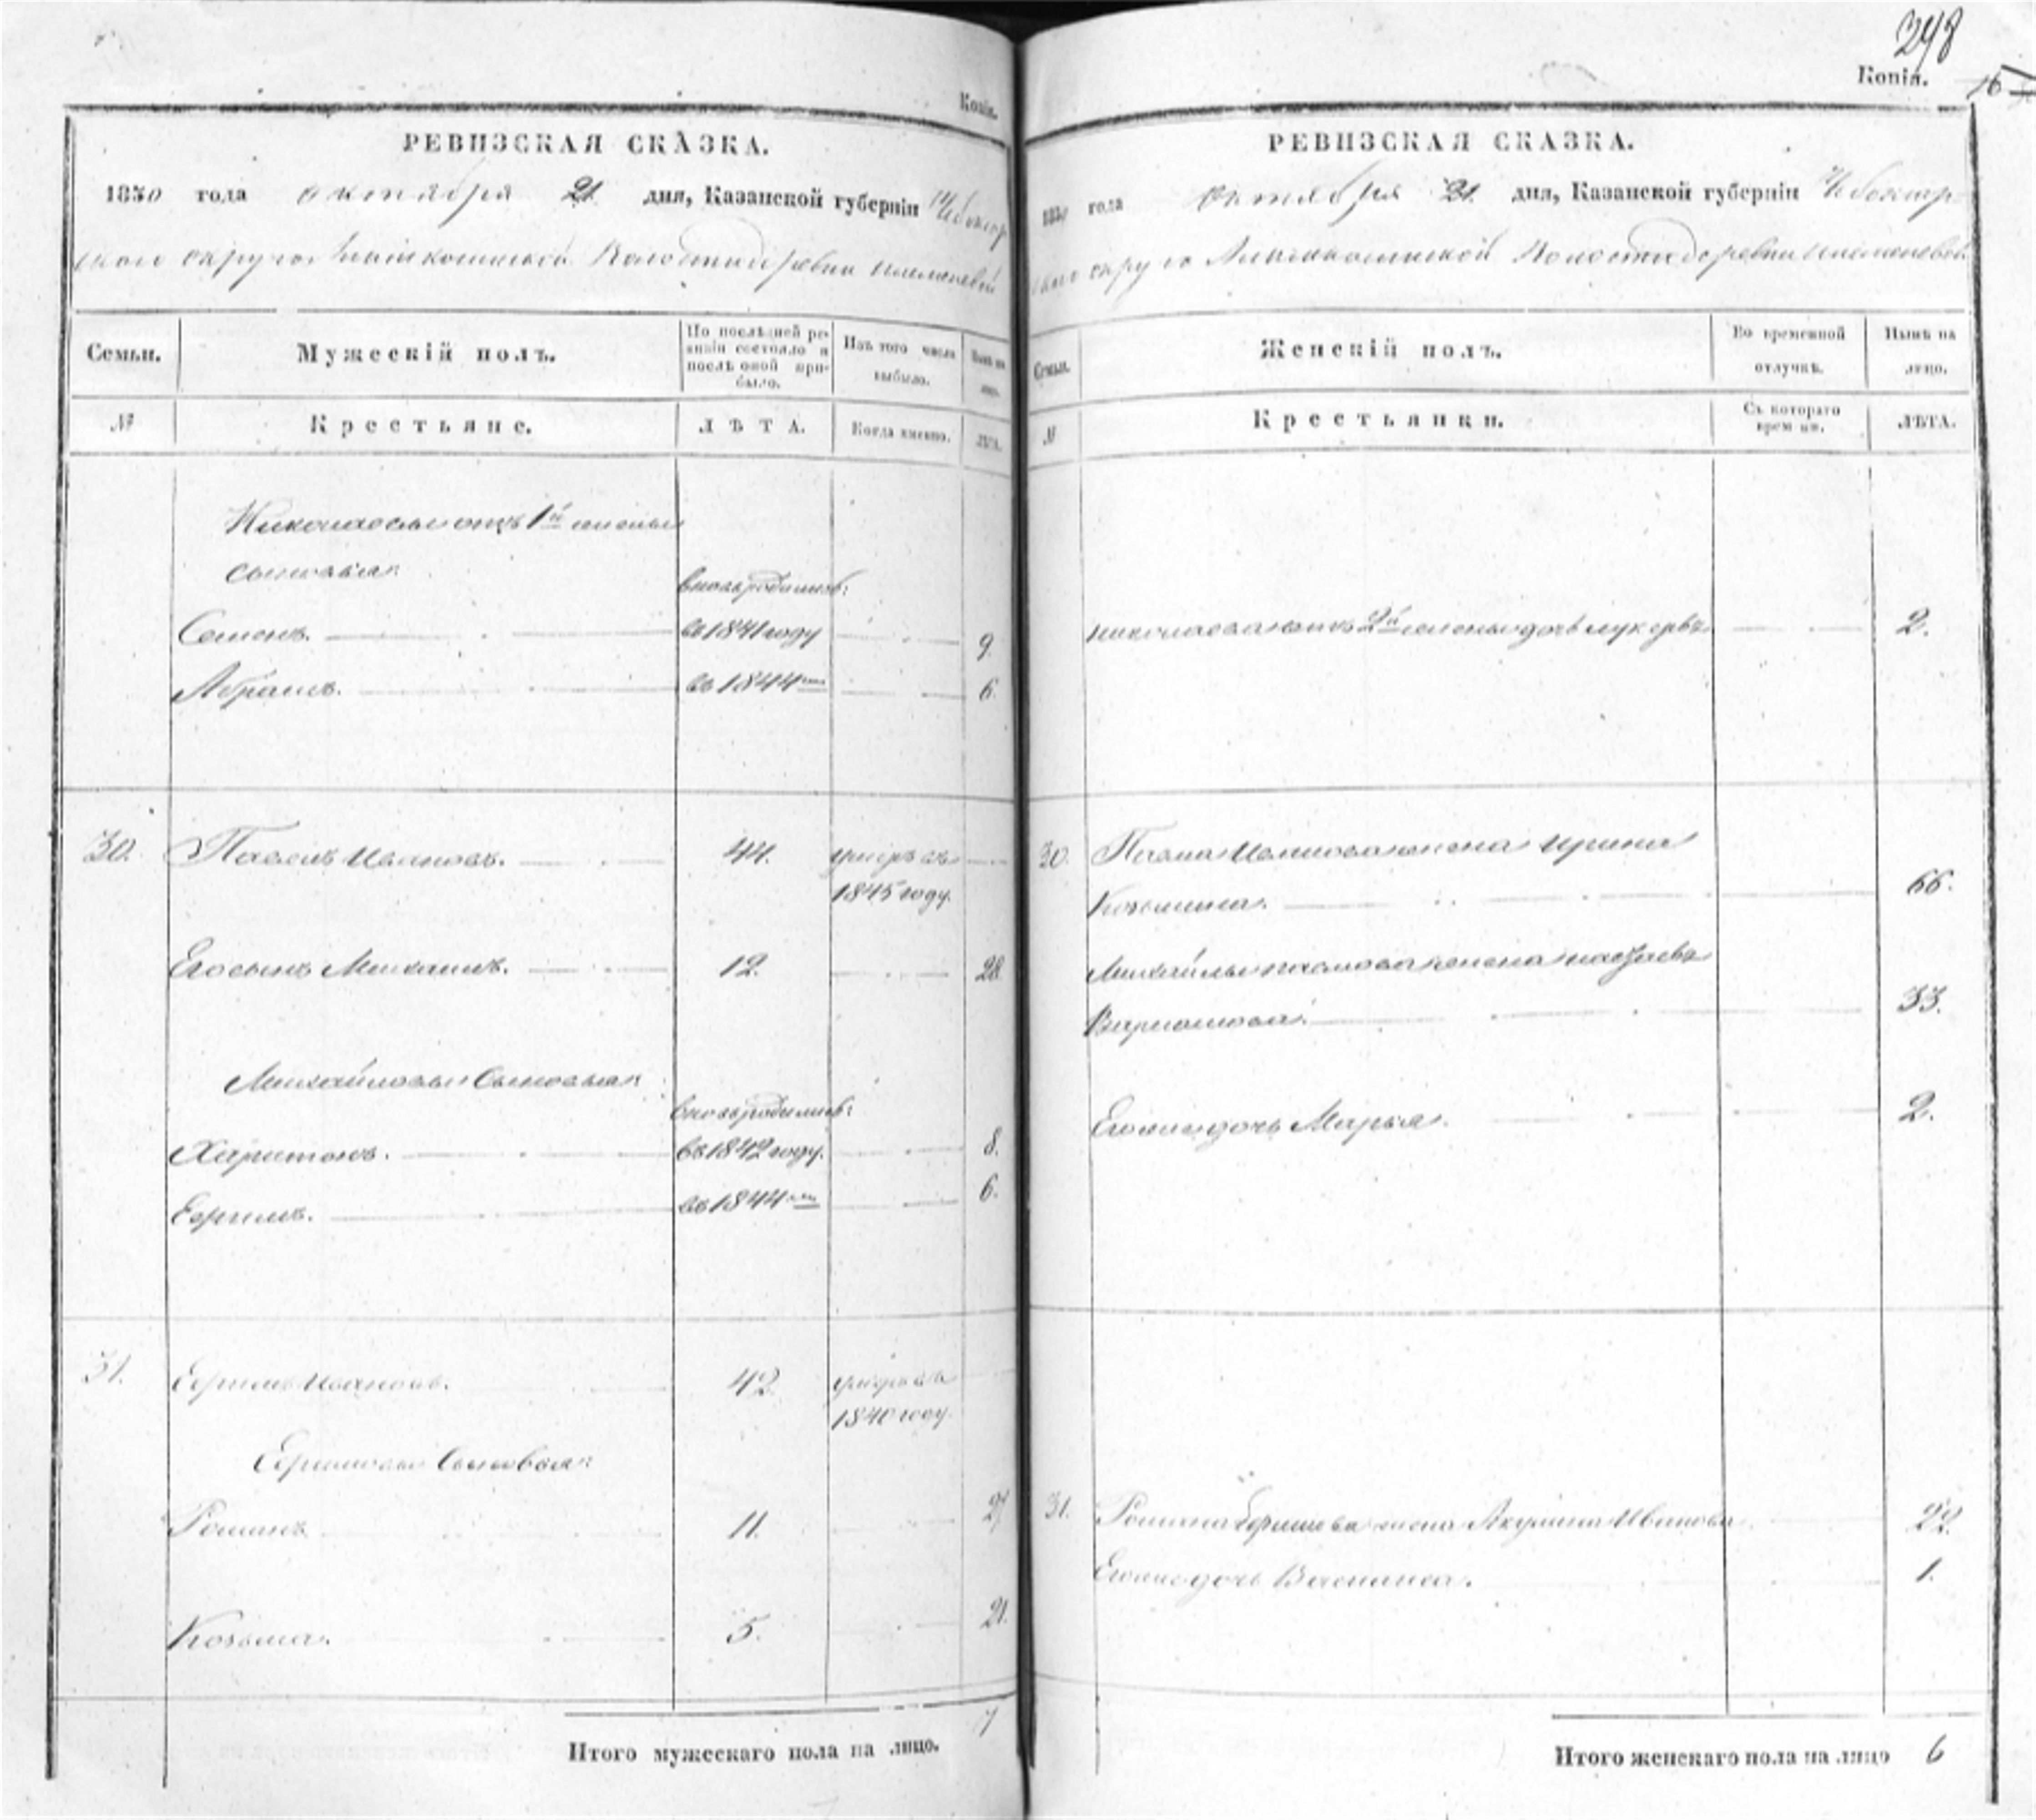 Копія.
РЕВИЗСКАЯ СКАЗКА.
1850 года октября 21 дня, Казанской губерніи Чебоксар
скаго округа Волости деревни
Семьи. Мужескій полъ. По послѣдней ре-визіи состояло и послѣ оной при-было. Изъ того числа выбыло. Нынѣ на лицо.
№ Крестьяне. ЛѢТА. Когда именно. ЛѢТА.
Николаевы отъ 1й жены
сыновья:
вновь родились:
Семенъ. въ 1841 году 9.
Абрамъ. въ 1844 6.
30. Павелъ Ивановъ. 44. умеръ въ
1845 году.
Его сынъ Михаилъ. 12. 28
Михайловы сыновья:
вновь родились:
Харитонъ. въ 1842 году. 8.
Ефимъ. въ 1844 6.
31. Ивановъ. 42. умеръ въ
1840 году.
сыновья:
Романъ 11. 27
Козьма. 5. 21.
Итого мужескаго пола на лицо. 7
298
Копія.
РЕВИЗСКАЯ СКАЗКА.
1850 года октября 21 дня, Казанской губерніи Чебоксар
скаго округа Волости деревни
Семьи. Женскій полъ. Во временной отлучкѣ. Нынѣ на лицо.
№ Крестьянки. Съ котораго времени. ЛѢТА.
Николаева отъ 2й жены дочь Лукерья 2.
30. Павла Иванова жена Ирина
Козьмина. 66.
Михайлы Павлова жена
33.
Его же дочь Марья. 2.
31. Романа жена Акулина Иванова 22.
Его же дочь Василиса. 1.
Итого женскаго пола на лицо 6